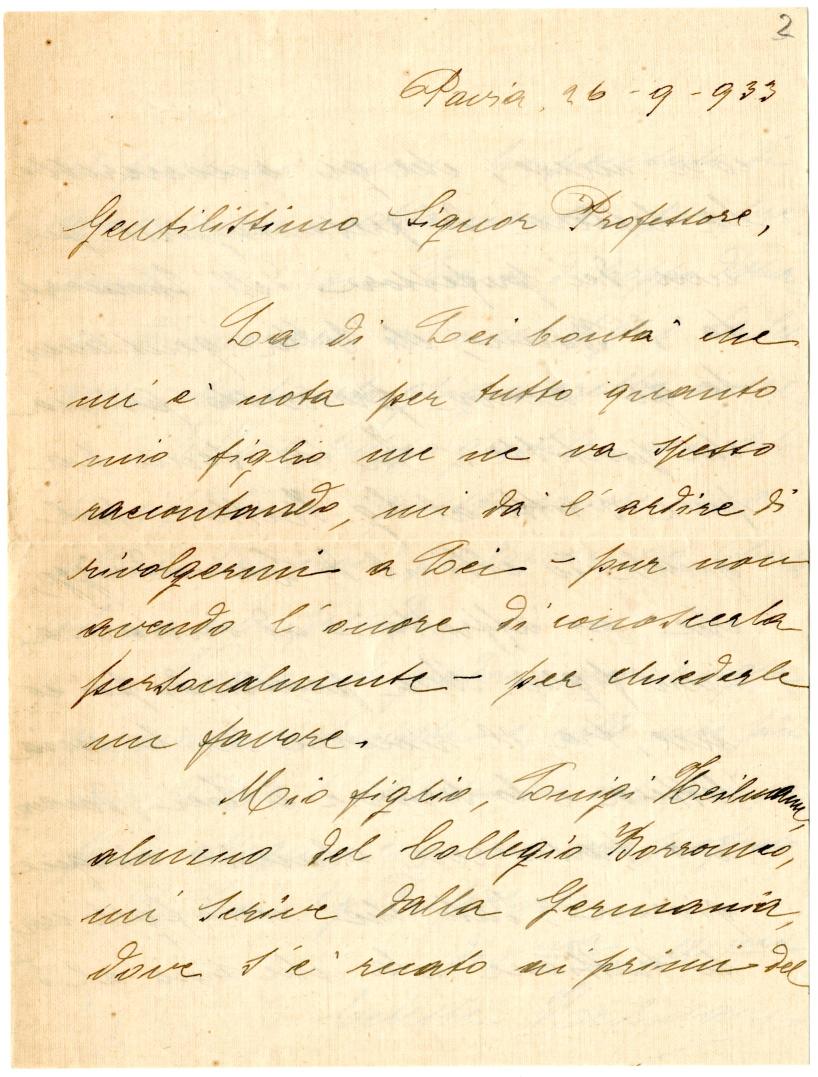 2
Pavia, 26 - 9 - 933
Gentilissimo Signor Professore,
La di Lei bontà che
mi è nota per tutto quanto
mio figlio me ne va spesso
raccontando, mi dà l'ardire di
rivolgermi a Lei - pur non
avendo l'onore di conoscerla
personalmente - per chiederle
un favore.
Mio figlio, Luigi Heilmann,
alunno del Collegio Borromeo,
mi scrive dalla Germania,
dove s'è recato ai primi del